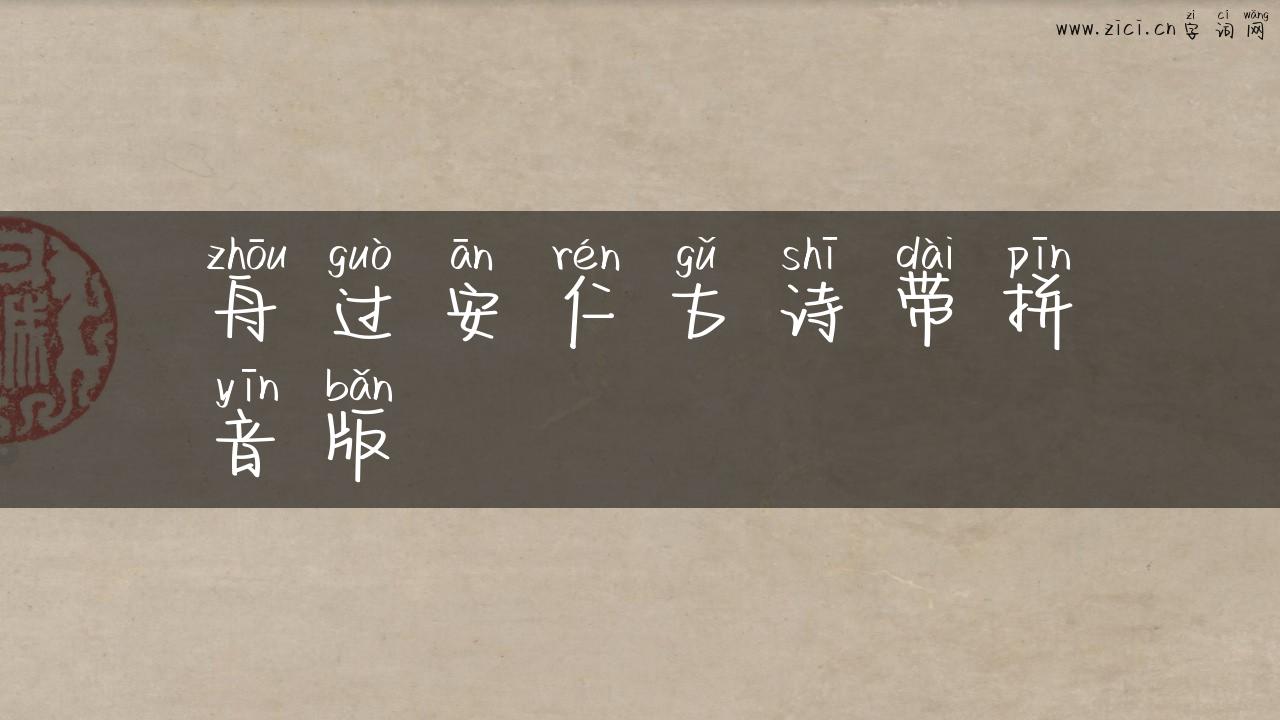 zì cí wǎng
www.zici.cn 字词网
zhōu guò ān rén gǔ shī dài pīn
舟过安仁古诗带拼
yīn bǎn
音版